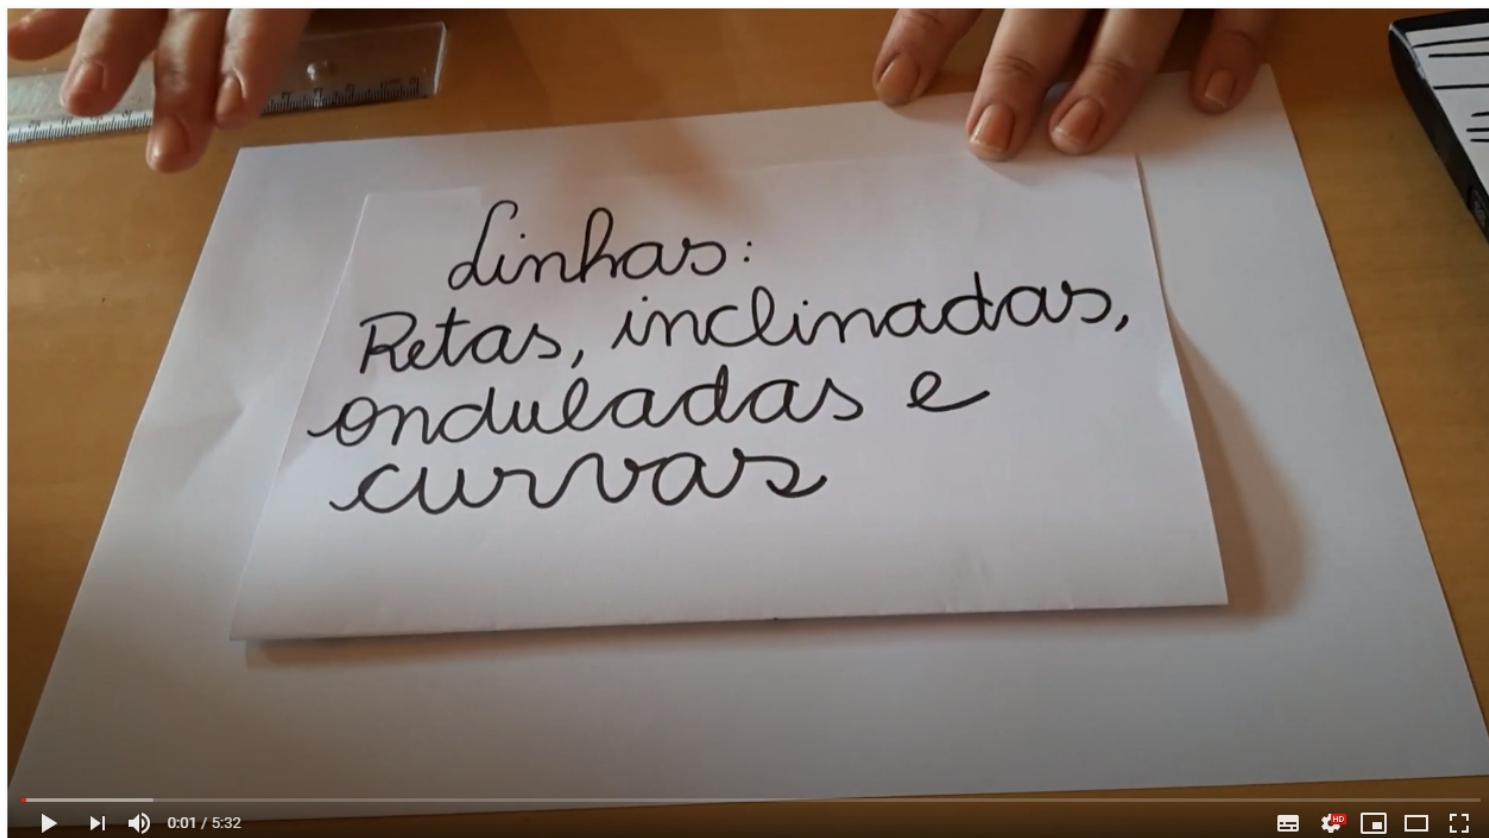 Linhas:
Retas, inclinadas,
onduladas e
curvas
0:01 / 5:32
HD